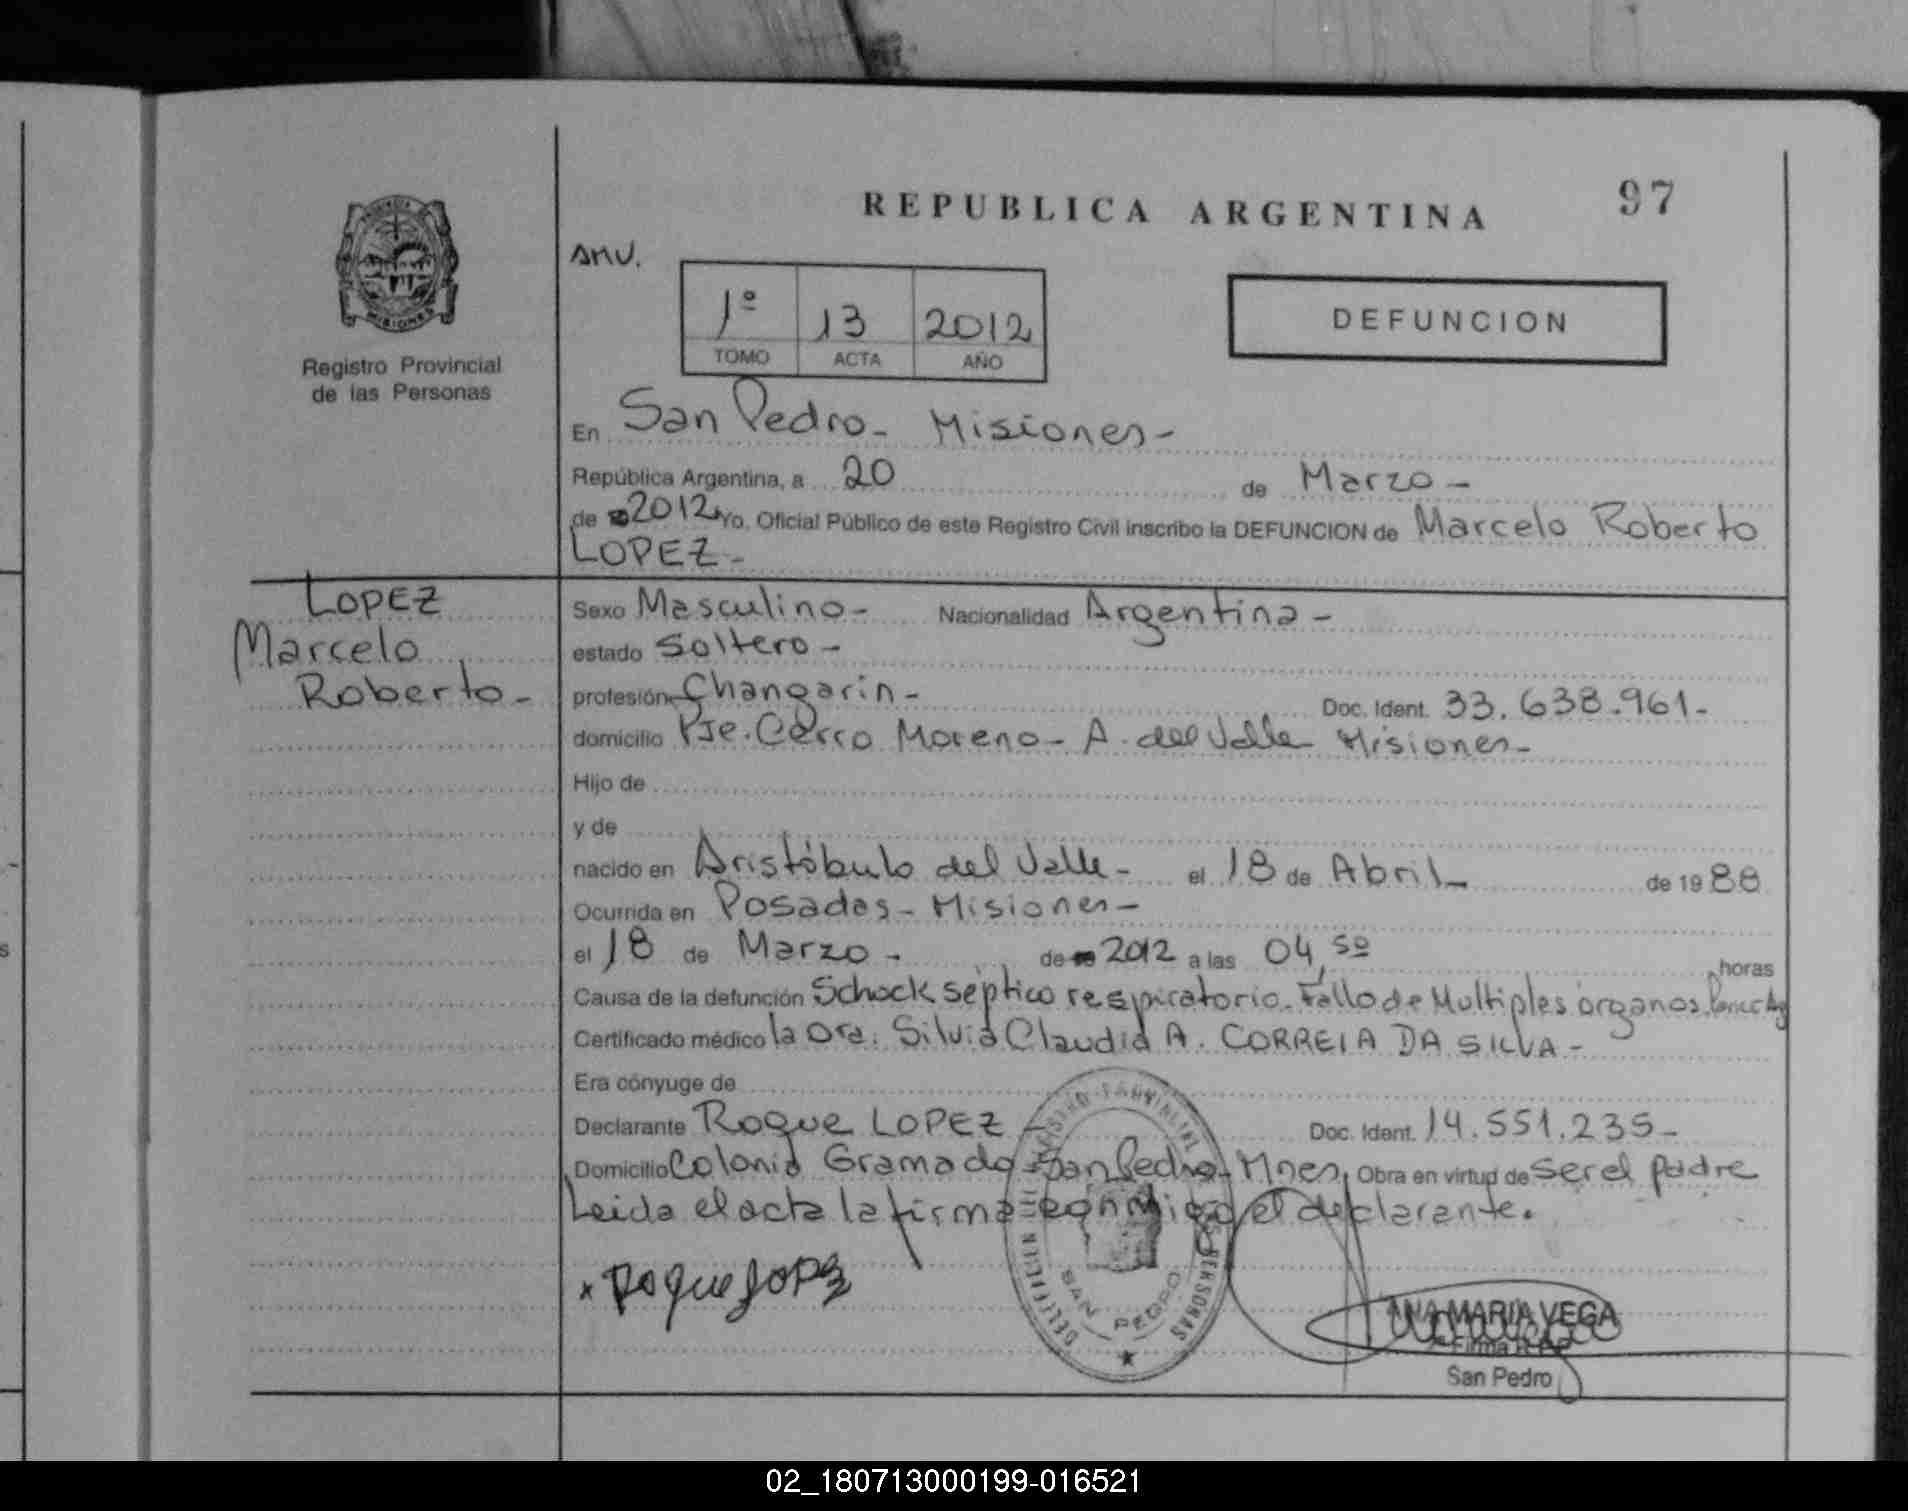 REPUBLICA ARGENTINA
97
PROVINCIA
MISIONES
Registro Provincial
de las Personas
AMV.
1º 13 2012
TOMO ACTA AÑO
DEFUNCION
En San Pedro - Misiones -
República Argentina, a 20 de Marzo -
de 2012 Yo, Oficial Público de este Registro Civil inscribo la DEFUNCION de Marcelo Roberto
LOPEZ -
LOPEZ
Marcelo
Roberto -
Sexo Masculino - Nacionalidad Argentina -
estado Soltero -
profesión Changarin - Doc. Ident. 33.638.961 -
domicilio Pje. Cerro Moreno - A. del Valle Misiones -
Hijo de
y de
nacido en Aristóbulo del Valle - el 18 de Abril - de 1988
Ocurrida en Posadas - Misiones -
el 18 de Marzo - de 2012 a las 04,50 horas
Causa de la defunción Schock séptico respiratorio. Fallo de Multiples órganos.
Certificado médico la Dra. Silvia Claudia A. CORREIA DA SILVA -
Era cónyuge de
Declarante Roque LOPEZ - Doc. Ident. 14.551.235 -
Domicilio Colonia Gramado - San Pedro - Mnes. Obra en virtud de Ser el padre
Leida el acta la firma conmigo el declarante.
x Roque Lopez
SAN PEDRO
ANA MARIA VEGA
San Pedro
02_180713000199-016521